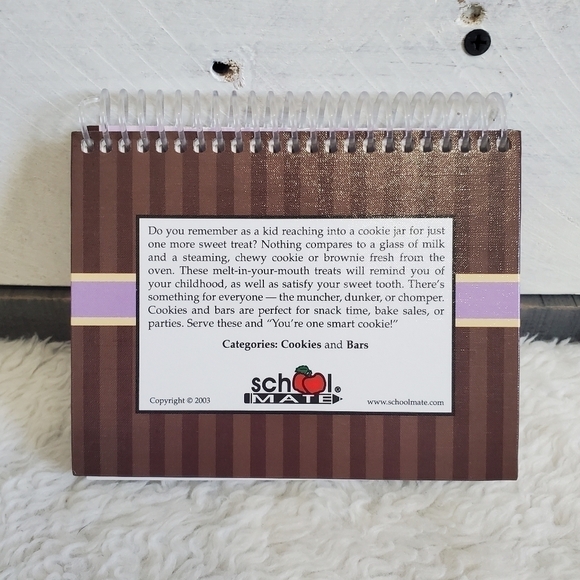 Do you remember as a kid reaching into a cookie jar for just
one more sweet treat? Nothing compares to a glass of milk
and a steaming, chewy cookie or brownie fresh from the
oven. These melt-in-your-mouth treats will remind you of
your childhood, as well as satisfy your sweet tooth. There's
something for everyone — the muncher, dunker, or chomper.
Cookies and bars are perfect for snack time, bake sales, or
parties. Serve these and "You're one smart cookie!"
Categories: Cookies and Bars
school®
MATE
Copyright © 2003
www.schoolmate.com